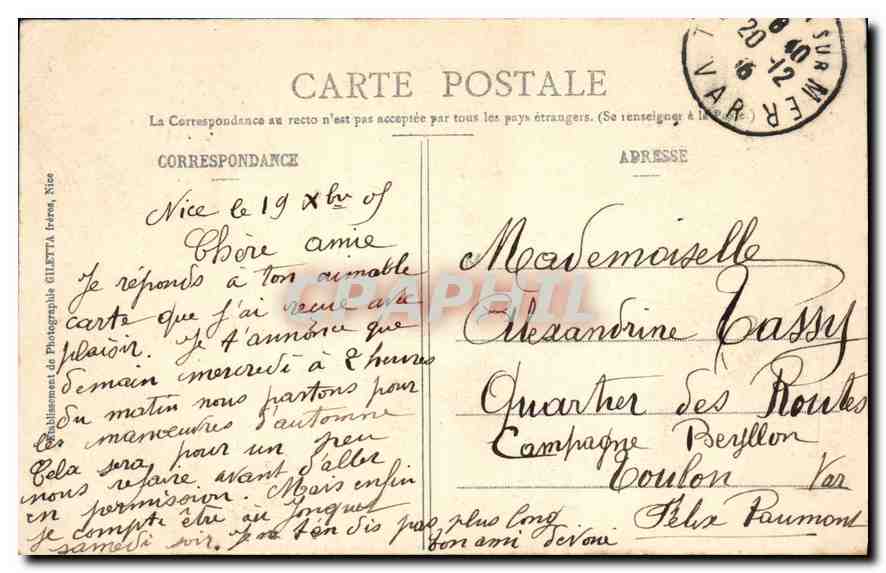 CARTE POSTALE
La Correspondance au recto n'est pas acceptée par tous les pays étrangers. (Se renseigner à la Poste)
CORRESPONDANCE
Nice le 19 Xbre 05
Chère amie
Je réponds à ton aimable
carte que j'ai recue avec
plaisir. Je t'annonce que
demain mercredi à 2 heures
du matin nous partons pour
les manœuvres d'automne
Cela sera pour un peu
nous refaire avant d'aller
en permission. Mais enfin
je compte être au Jonquet
samedi soir. Je ne t'en dis pas plus long
ton ami dévoué
Félix Paumont
ADRESSE
Mademoiselle
Alexandrine Tassy
Quartier des Routes
Campagne Beryllon
Toulon Var
SUR MER
VAR
20 -12
Etablissement de Photographie GILETTA frères, Nice
CPAPHIL